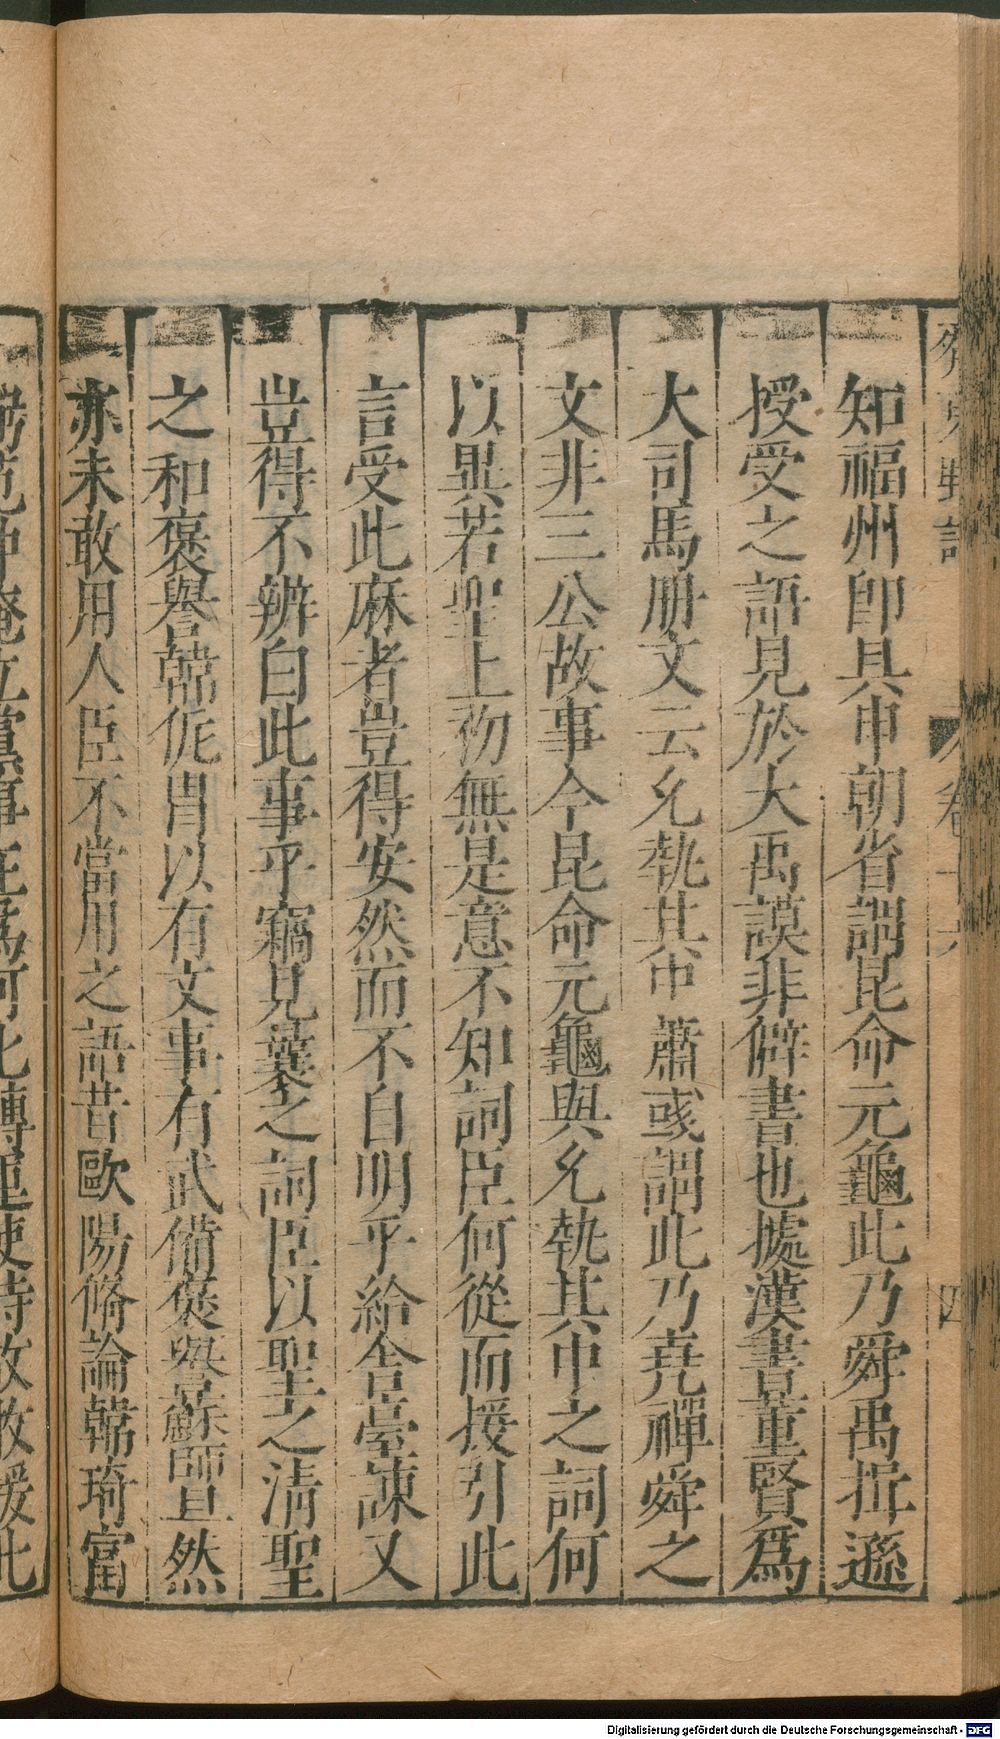 知福州卽具申朝省謂昆命元龜此乃舜禹揖遜
授受之語見於大禹謨非僻書也據漢書董賢爲
大司馬册文云允執其中蕭咸謂此乃堯禪舜之
文非三公故事今昆命元龜與允執其中之詞何
以異若聖上初無是意不知詞臣何從而援引此
言受此麻者豈得安然而不自明乎給舍臺諫又
豈得不辨白此事乎竊見曩之詞臣以聖之淸聖
之和褒譽韓侂冑以有文事有武備褒譽蘇師旦然
亦未敢用人臣不當用之語昔歐陽脩論韓琦富
Digitalisierung gefördert durch die Deutsche Forschungsgemeinschaft - DFG